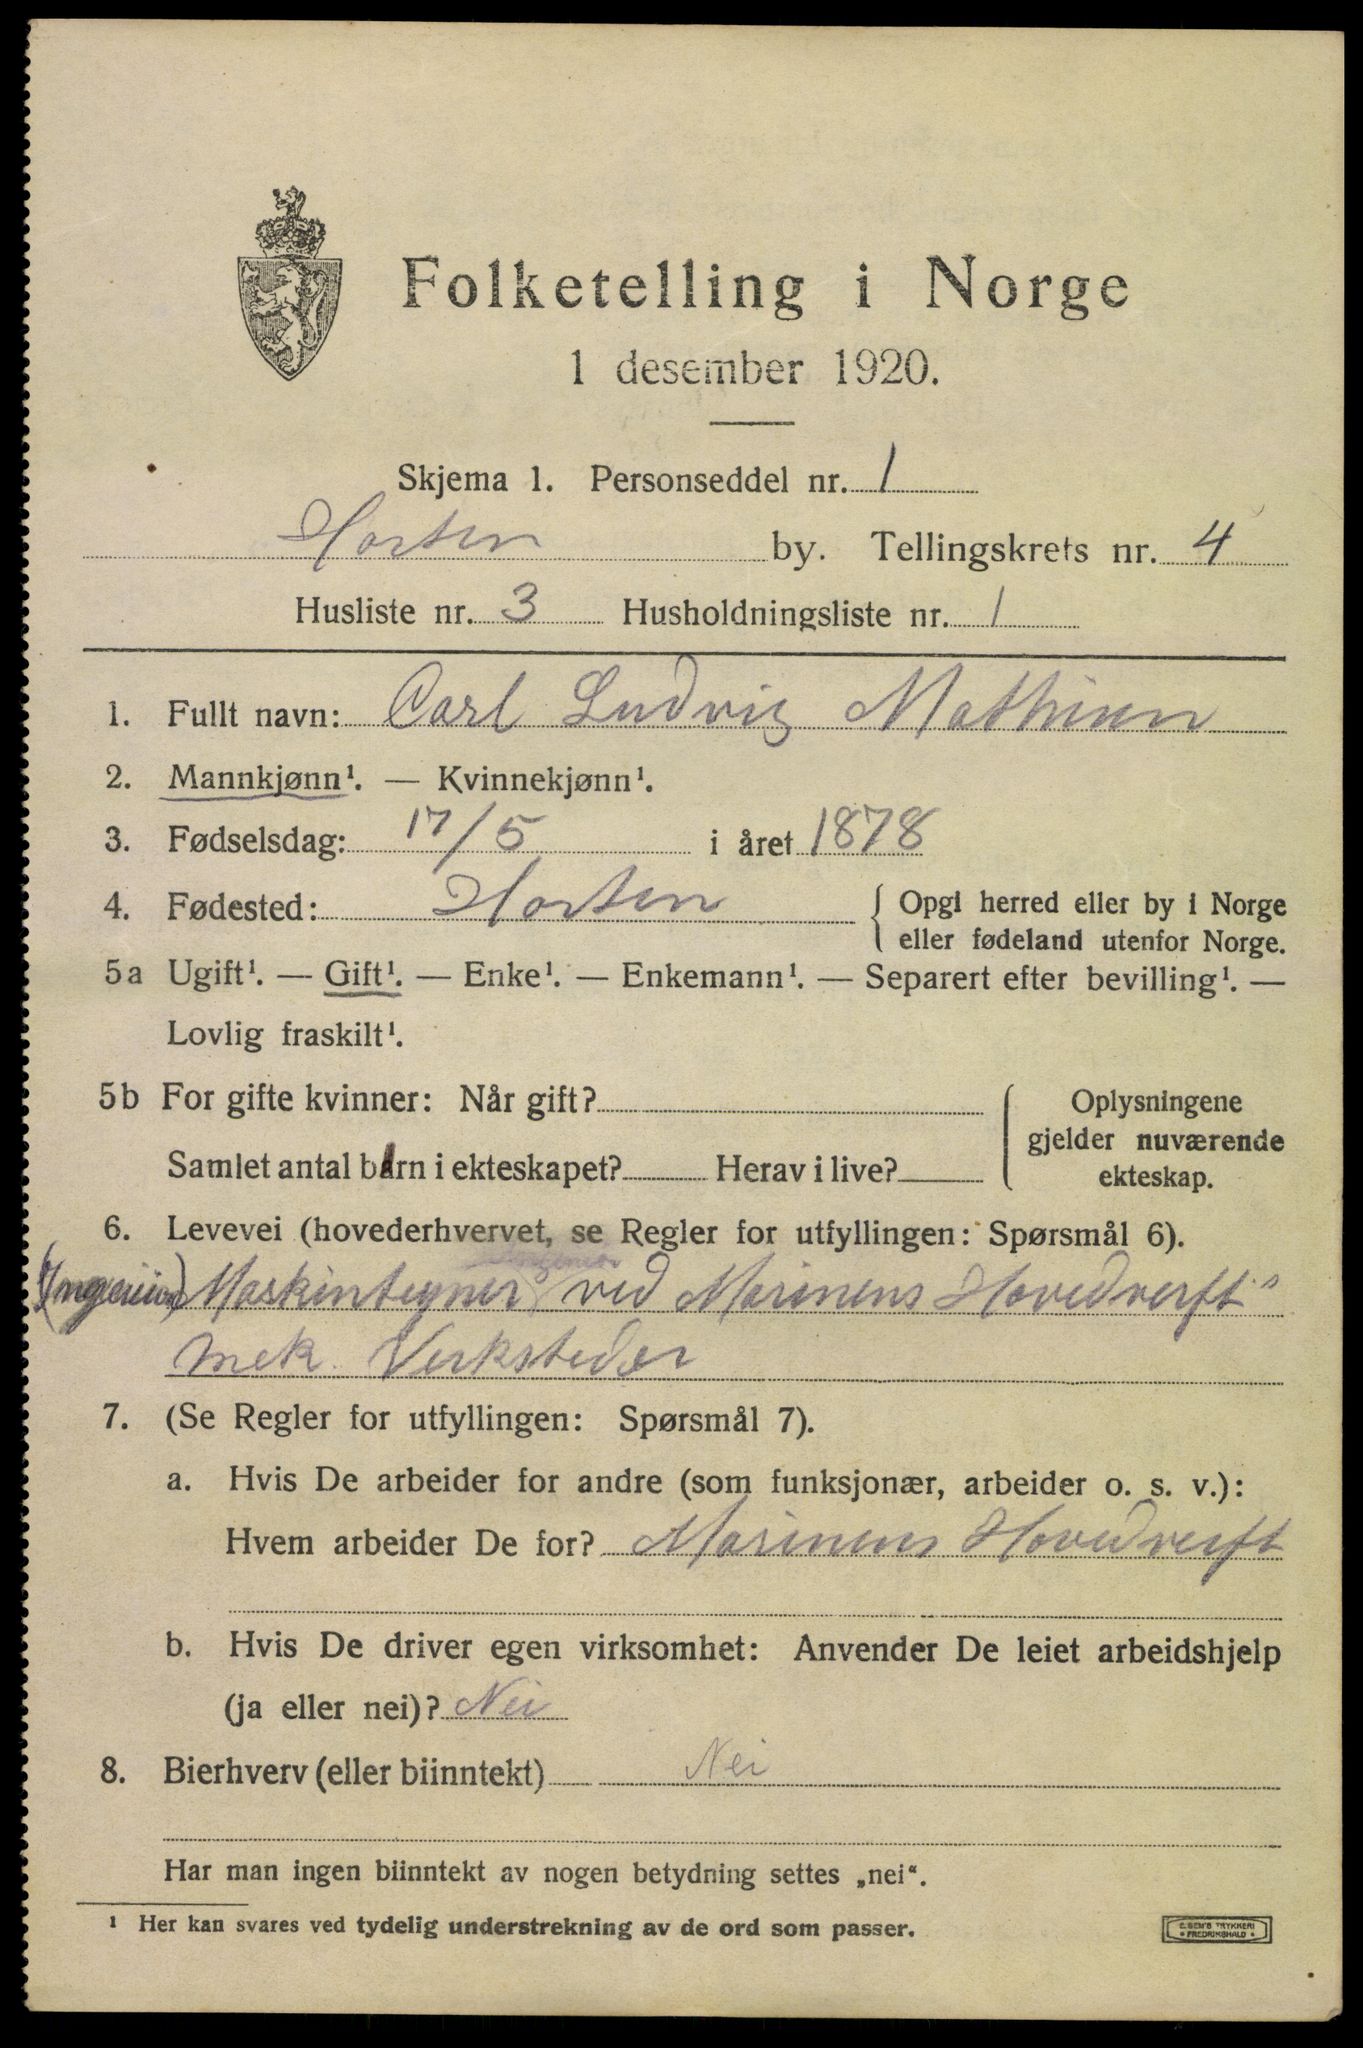 Folketelling i Norge
1 desember 1920.
Skjema 1. Personseddel nr. 1
Horten by. Tellingskrets nr. 4
Husliste nr. 3 Husholdningsliste nr. 1
1. Fullt navn: Carl Ludvig Mathisen
2. Mannkjønn¹. — Kvinnekjønn¹.
3. Fødselsdag: 17/5 i året 1878
4. Fødested: Horten { Opgi herred eller by i Norge
eller fødeland utenfor Norge.
5a Ugift¹. — Gift¹. — Enke¹. — Enkemann¹. — Separert efter bevilling¹. —
Lovlig fraskilt¹.
5b For gifte kvinner: Når gift? { Oplysningene
gjelder nuværende
Samlet antal barn i ekteskapet? Herav i live? ekteskap.
6. Levevei (hovederhvervet, se Regler for utfyllingen: Spørsmål 6).
Ingeniør
(Ingeniør) Maskintegner ved Marinens Hovedverft"
mek. Verksteder
7. (Se Regler for utfyllingen: Spørsmål 7).
a. Hvis De arbeider for andre (som funksjonær, arbeider o. s. v.):
Hvem arbeider De for? Marinens Hovedverft
b. Hvis De driver egen virksomhet: Anvender De leiet arbeidshjelp
(ja eller nei)? Nei
8. Bierhverv (eller biinntekt) Nei
Har man ingen biinntekt av nogen betydning settes „nei“.
¹ Her kan svares ved tydelig understrekning av de ord som passer.
E. SEM'S TRYKKERI
* FREDRIKSHALD *